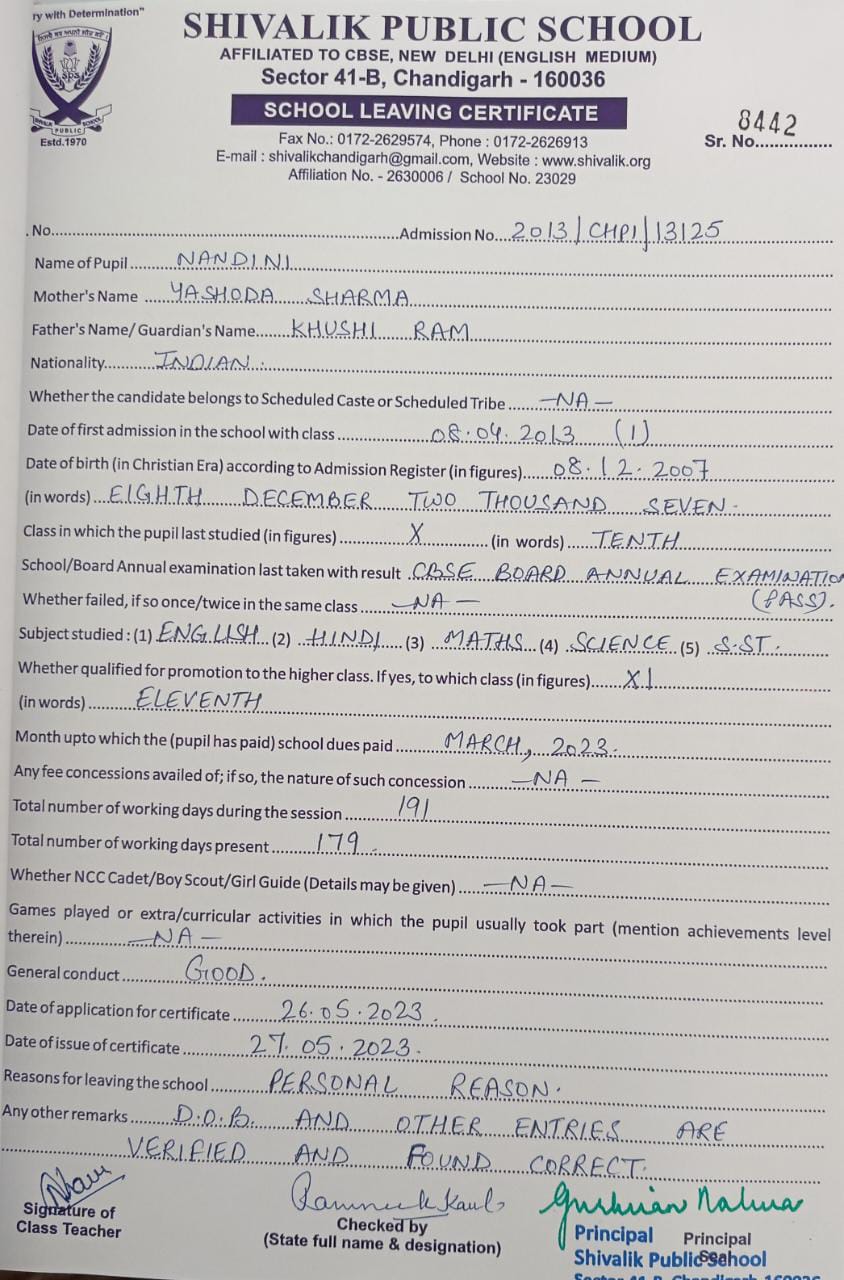 ry with Determination"
SHIVALIK PUBLIC SCHOOL
AFFILIATED TO CBSE, NEW DELHI (ENGLISH MEDIUM)
Sector 41-B, Chandigarh - 160036
SCHOOL LEAVING CERTIFICATE
SPS
SHIVALIK PUBLIC SCHOOL
Estd.1970
Fax No.: 0172-2629574, Phone : 0172-2626913
E-mail : shivalikchandigarh@gmail.com, Website : www.shivalik.org
Affiliation No. - 2630006 / School No. 23029
Sr. No. 8442
. No. Admission No. 2013/CHPI/13125
Name of Pupil NANDINI
Mother's Name YASHODA SHARMA
Father's Name/ Guardian's Name KHUSHI RAM
Nationality INDIAN.
Whether the candidate belongs to Scheduled Caste or Scheduled Tribe —NA—
Date of first admission in the school with class 08.04.2013 (1)
Date of birth (in Christian Era) according to Admission Register (in figures) 08.12.2007
(in words) EIGHTH DECEMBER TWO THOUSAND SEVEN.
Class in which the pupil last studied (in figures) X (in words) TENTH
School/Board Annual examination last taken with result CBSE BOARD ANNUAL EXAMINATION
Whether failed, if so once/twice in the same class —NA— (PASS).
Subject studied : (1) ENGLISH (2) HINDI (3) MATHS (4) SCIENCE (5) S.ST.
Whether qualified for promotion to the higher class. If yes, to which class (in figures) XI
(in words) ELEVENTH
Month upto which the (pupil has paid) school dues paid MARCH, 2023.
Any fee concessions availed of; if so, the nature of such concession —NA—
Total number of working days during the session 191
Total number of working days present 179.
Whether NCC Cadet/Boy Scout/Girl Guide (Details may be given) —NA—
Games played or extra/curricular activities in which the pupil usually took part (mention achievements level
therein) —NA—
General conduct GOOD.
Date of application for certificate 26.05.2023.
Date of issue of certificate 27.05.2023.
Reasons for leaving the school PERSONAL REASON.
Any other remarks D.O.B. AND OTHER ENTRIES ARE
VERIFIED AND FOUND CORRECT.
Signature of
Class Teacher
Ramneek Kaul
Checked by
(State full name & designation)
Principal Principal
Shivalik Public School
Seal
Sector 41-B, Chandigarh-160036